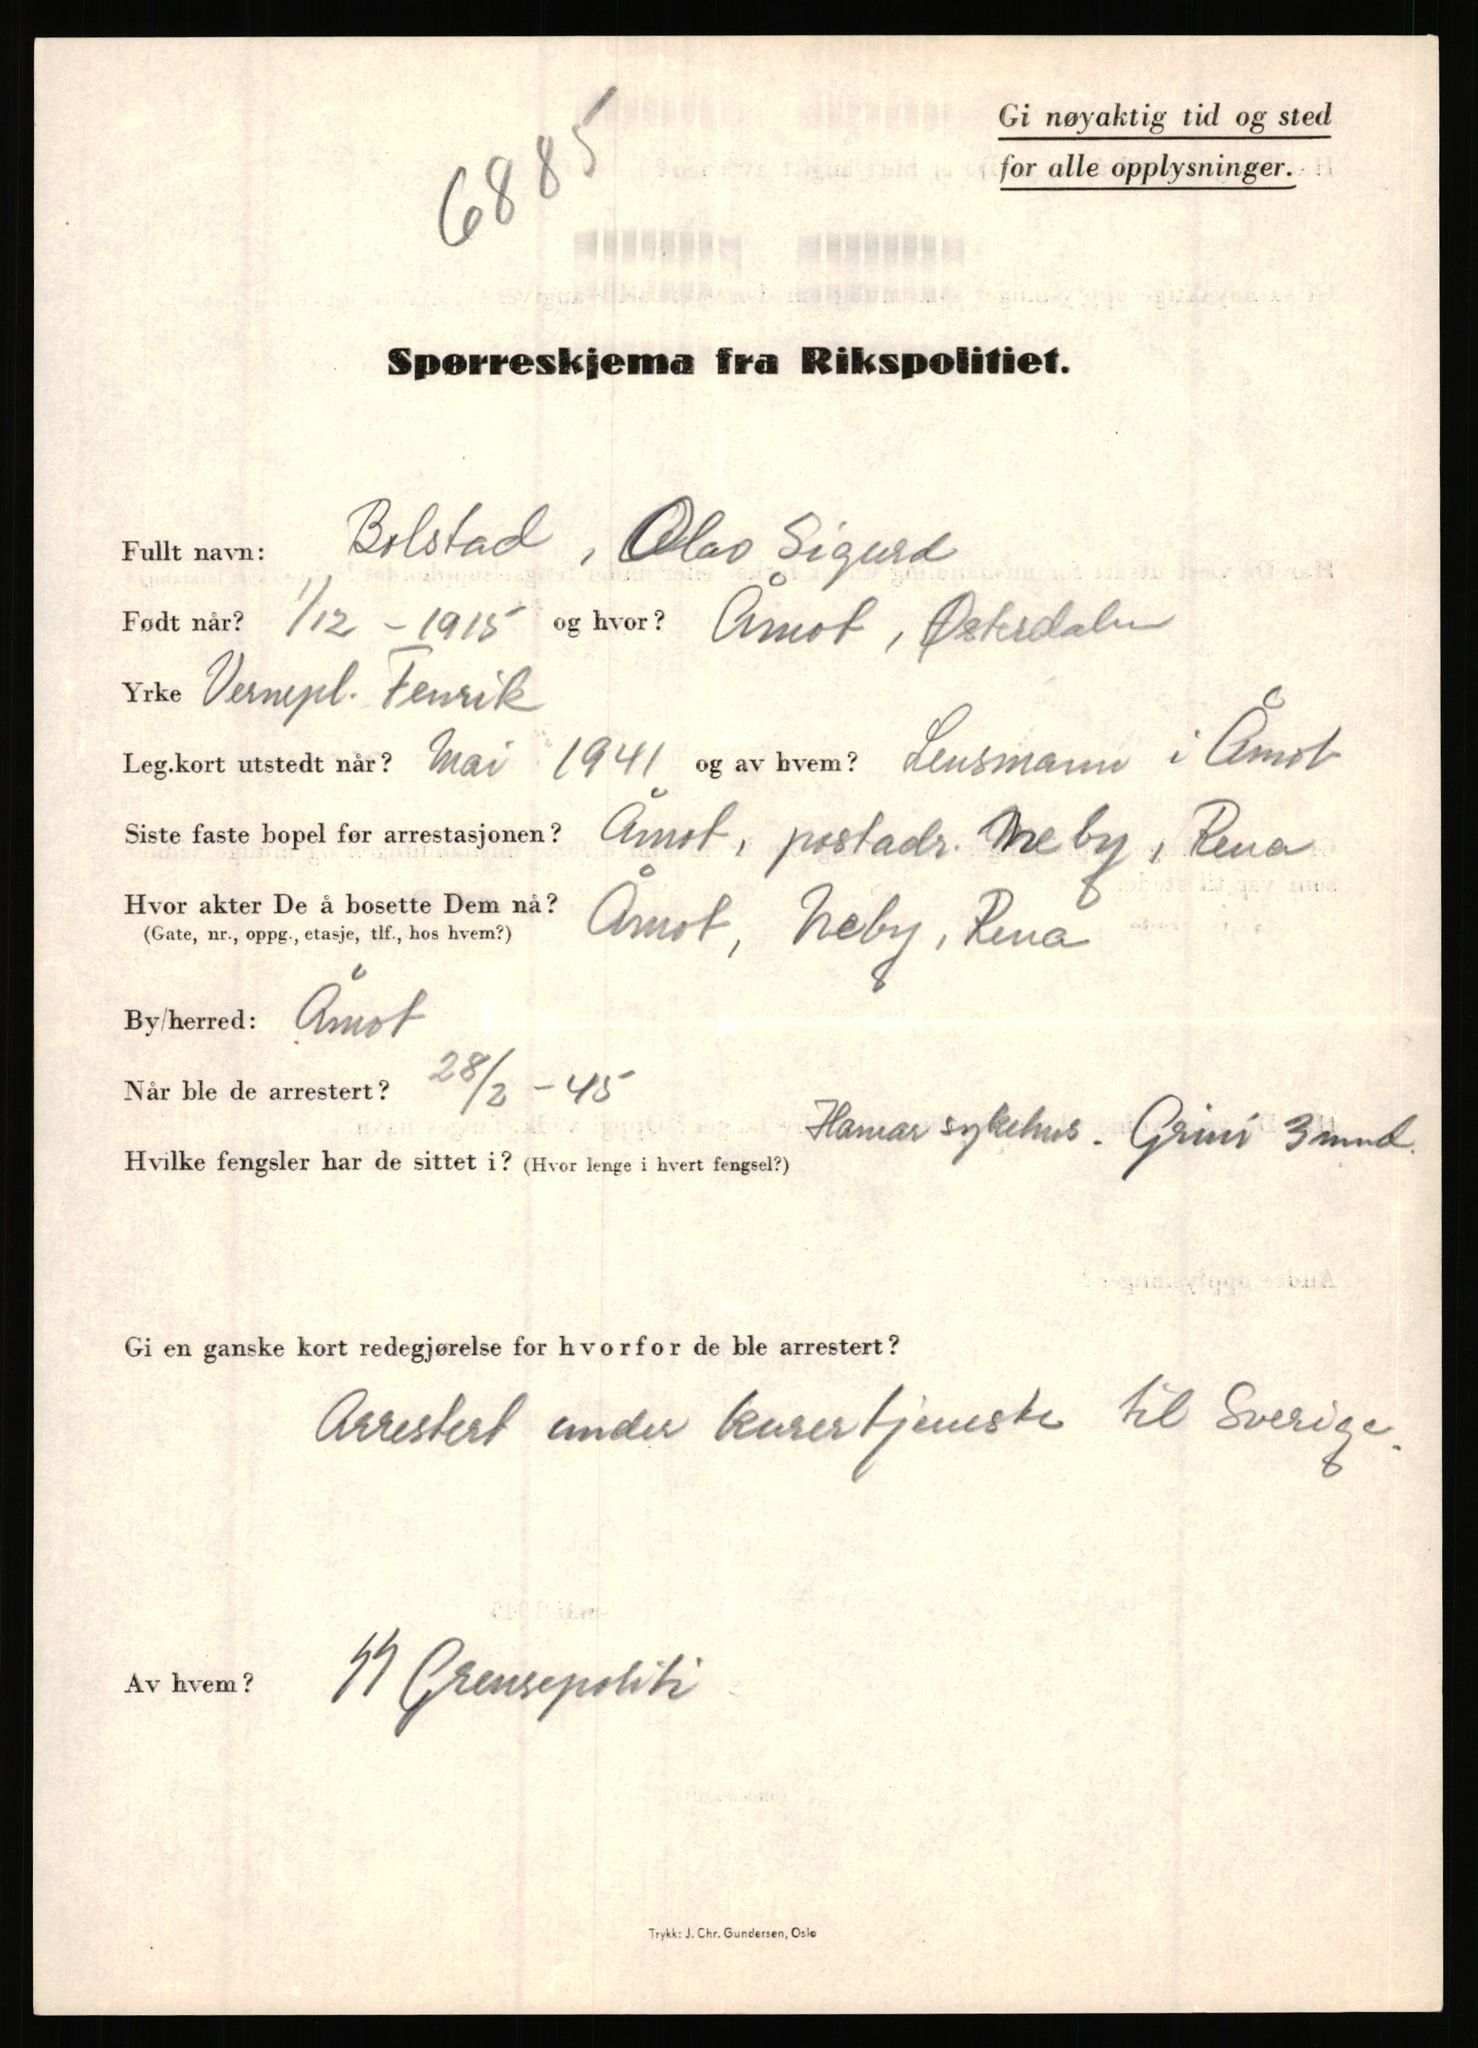 6885
Gi nøyaktig tid og sted
for alle opplysninger.
Spørreskjema fra Rikspolitiet.
Fullt navn: Bolstad, Olav Sigurd
Født når? 1/12 - 1915 og hvor? Åmot, Østerdalen
Yrke Vernepl. Fenrik
Leg.kort utstedt når? Mai 1941 og av hvem? Lensmann i Åmot
Siste faste bopel før arrestasjonen? Åmot, postadr. Neby, Rena
Hvor akter De å bosette Dem nå? Åmot, Neby, Rena
(Gate, nr., oppg., etasje, tlf., hos hvem?)
By/herred: Åmot
Når ble de arrestert? 28/2 - 45
Hvilke fengsler har de sittet i? (Hvor lenge i hvert fengsel?) Hamar sykehus. Grini 3 mnd.
Gi en ganske kort redegjørelse for hvorfor de ble arrestert?
Arrestert under kurertjeneste til Sverige.
Av hvem? SS Grensepoliti
Trykk: J. Chr. Gundersen, Oslo